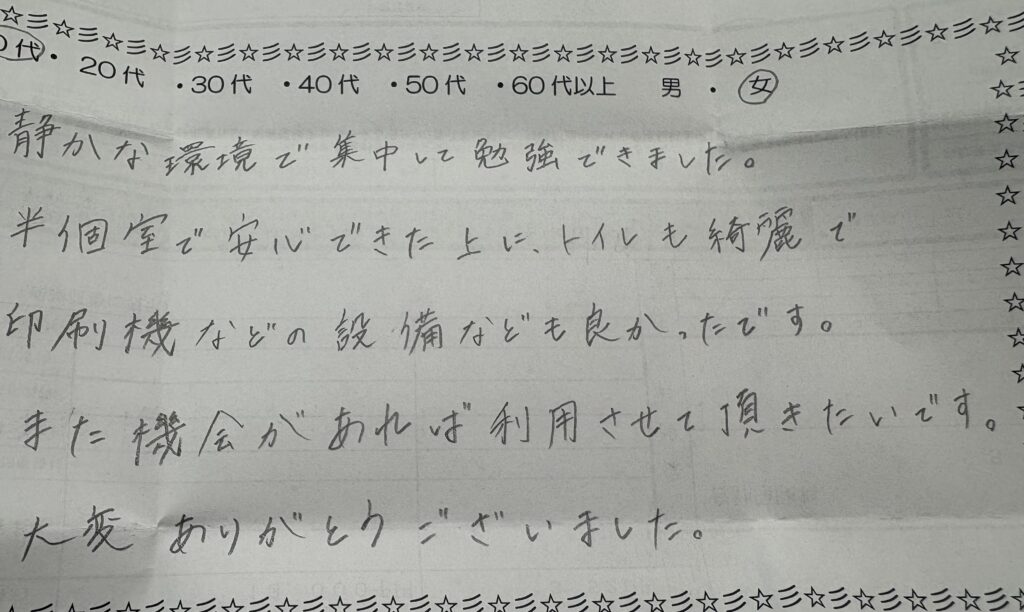 0代・20代・30代・40代・50代・60代以上 男・女
静かな環境で集中して勉強できました。
半個室で安心できた上に、トイレも綺麗で
印刷機などの設備なども良かったです。
また機会があれば利用させて頂きたいです。
大変ありがとうございました。